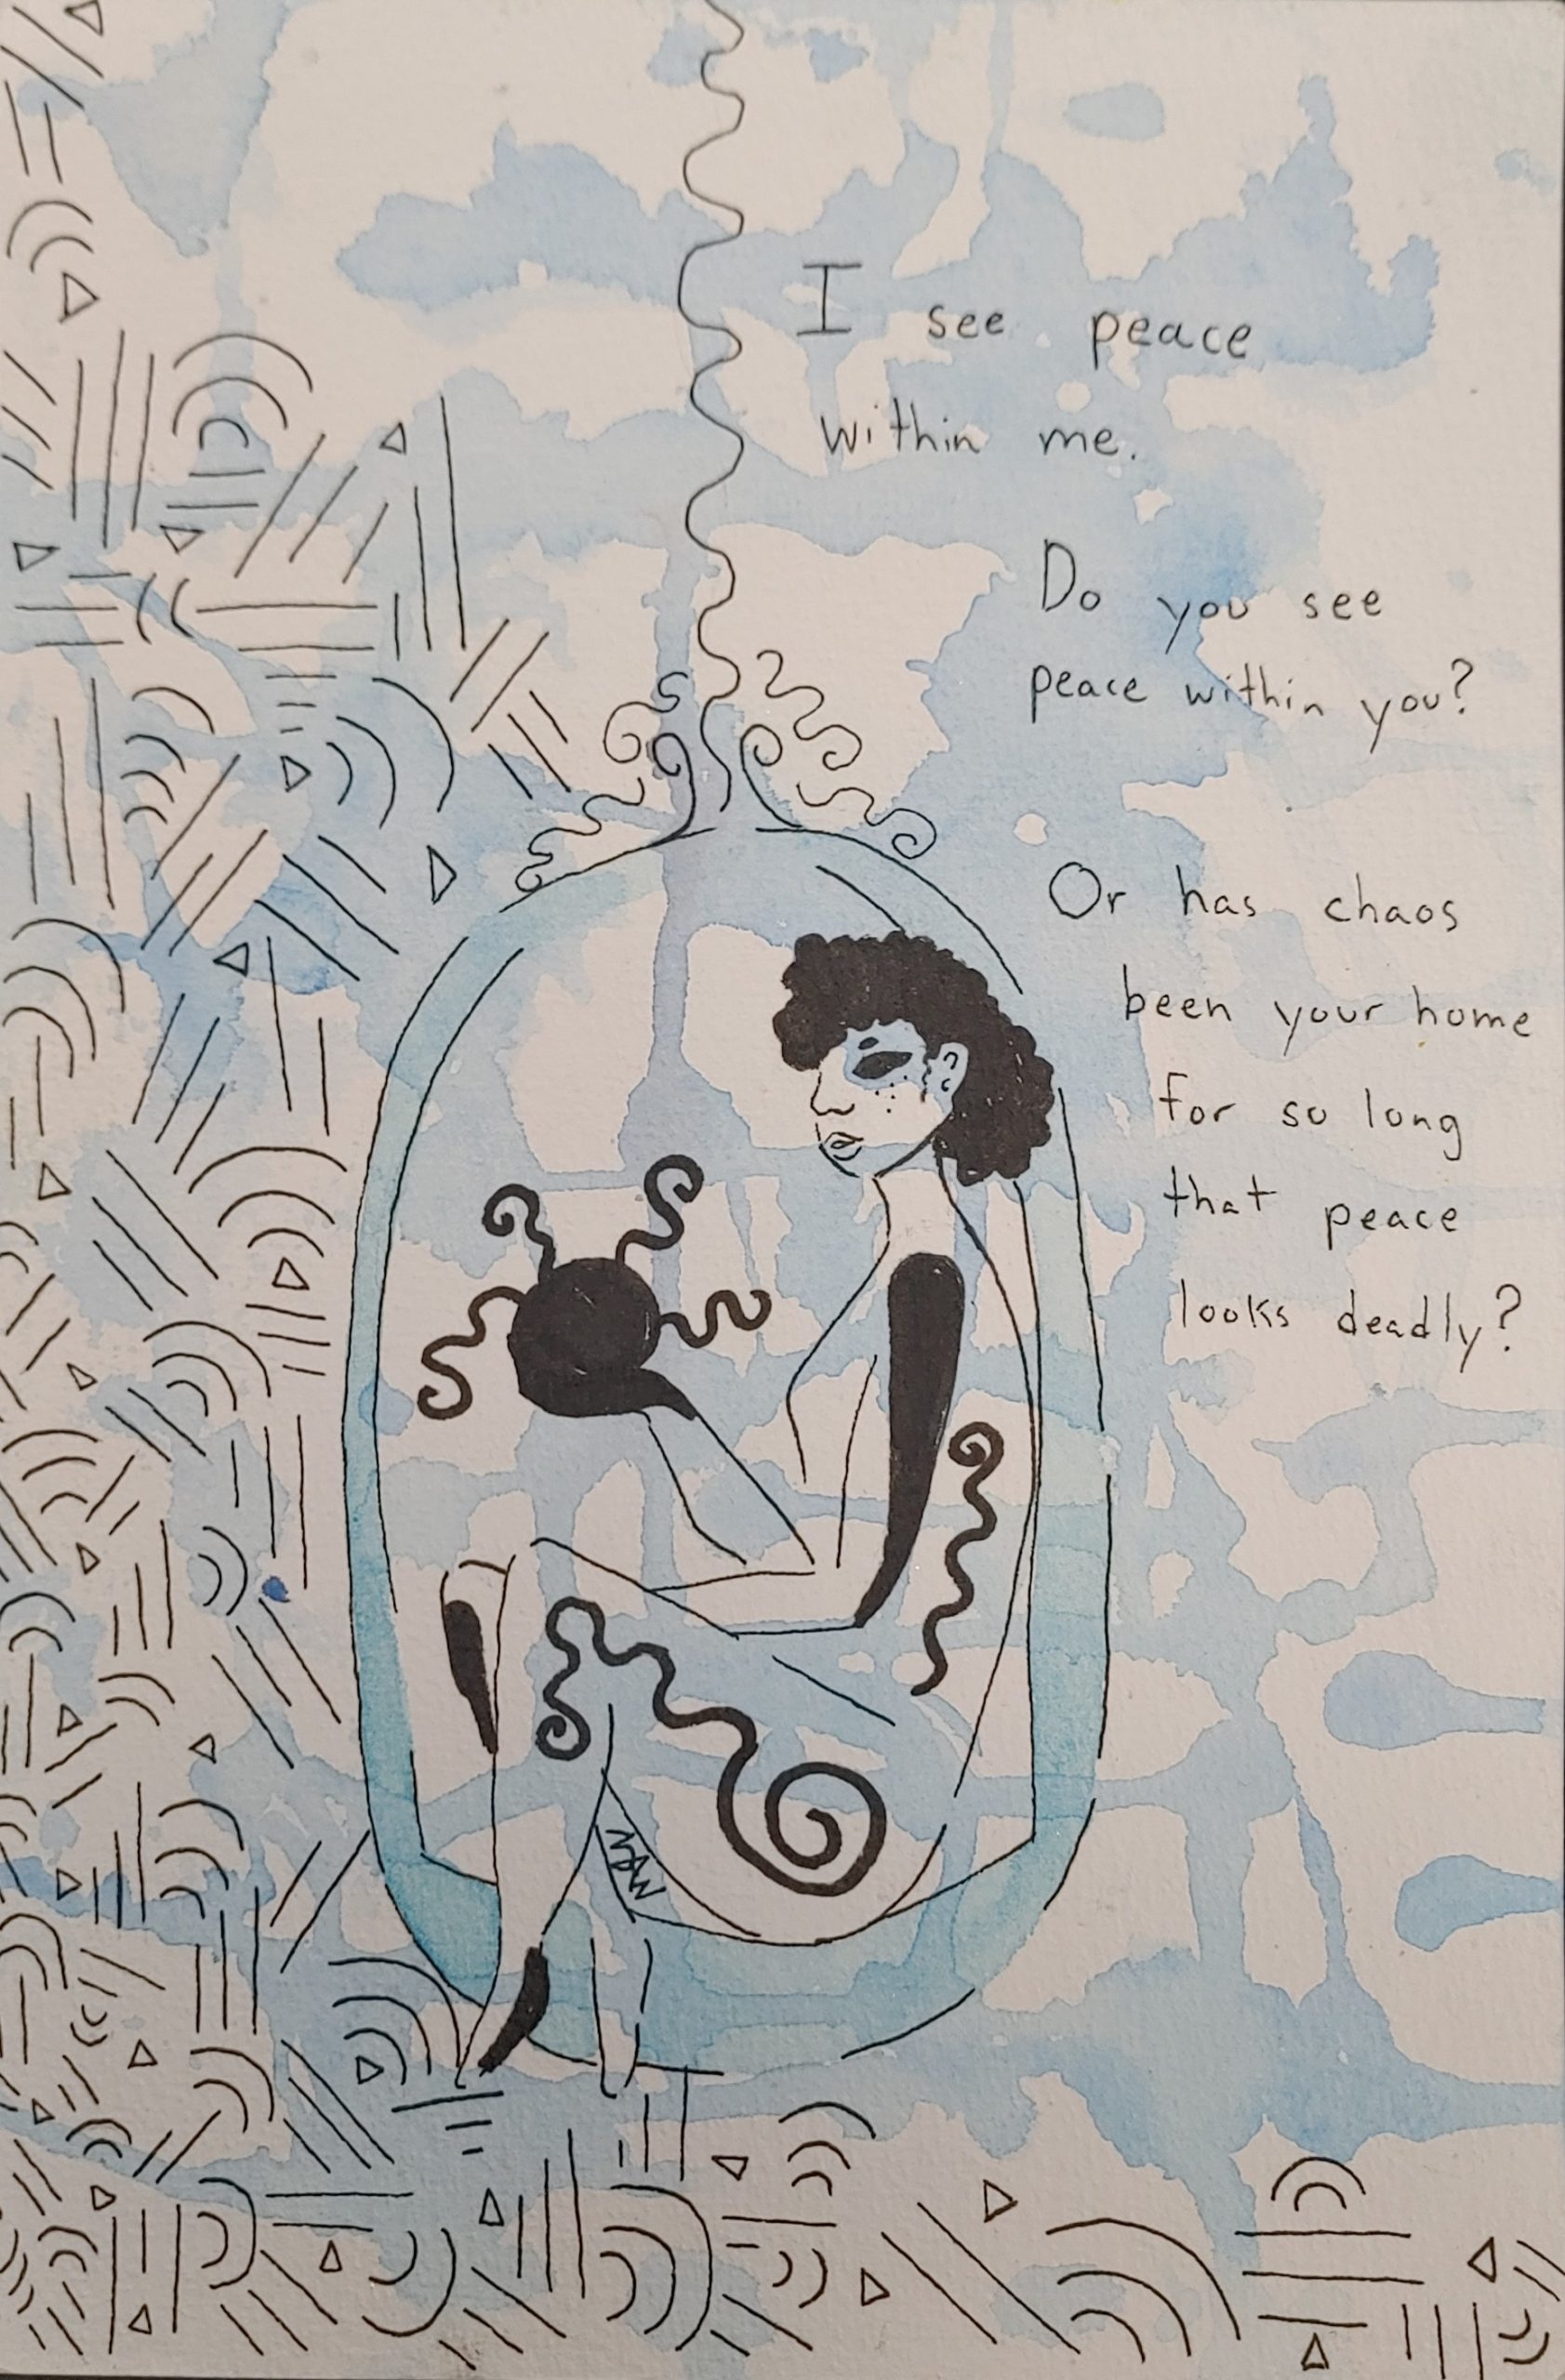 I see peace
within me.
Do you see
peace within you?
Or has chaos
been your home
for so long
that peace
looks deadly?